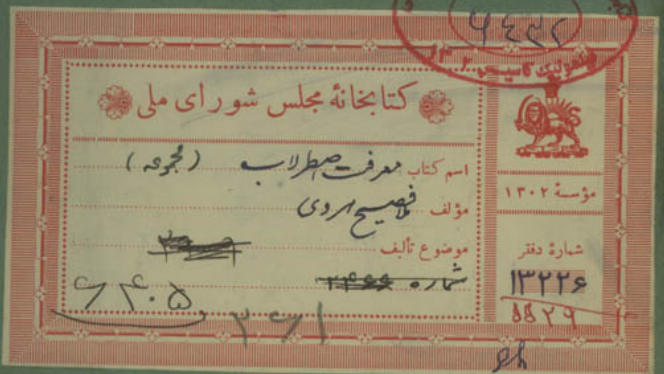 ۶۴۳۲
کتابخانهٔ مجلس شورای ملی
اسم کتاب معرفت اصطرلاب (مجموعه)
مؤلف ملا فصیح هروی
موضوع تألیف
شماره
۶۴۰۵
۳۶۱
مؤسسهٔ ۱۳۰۲
شمارهٔ دفتر
۱۳۲۲۶
۵۵۲۹